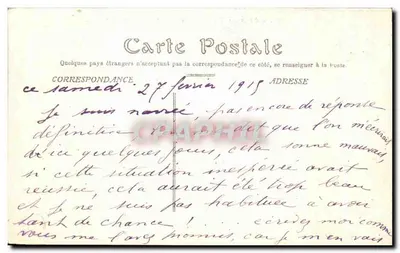 Carte Postale
Quelques pays étrangers n'acceptant pas la correspondance de ce côté, se renseigner à la Poste
CORRESPONDANCE ADRESSE
ce samedi 27 février 1915
Je suis navrée pas encore de réponse
définitive que l'on m'écrirait
d'ici quelques jours, cela sonne mauvais
si cette situation inespérée avait
réussie, cela aurait été trop beau
et je ne suis pas habituée à avoir
tant de chance ! ... écrivez moi comme
vous me l'avez promis, car je m'en vais